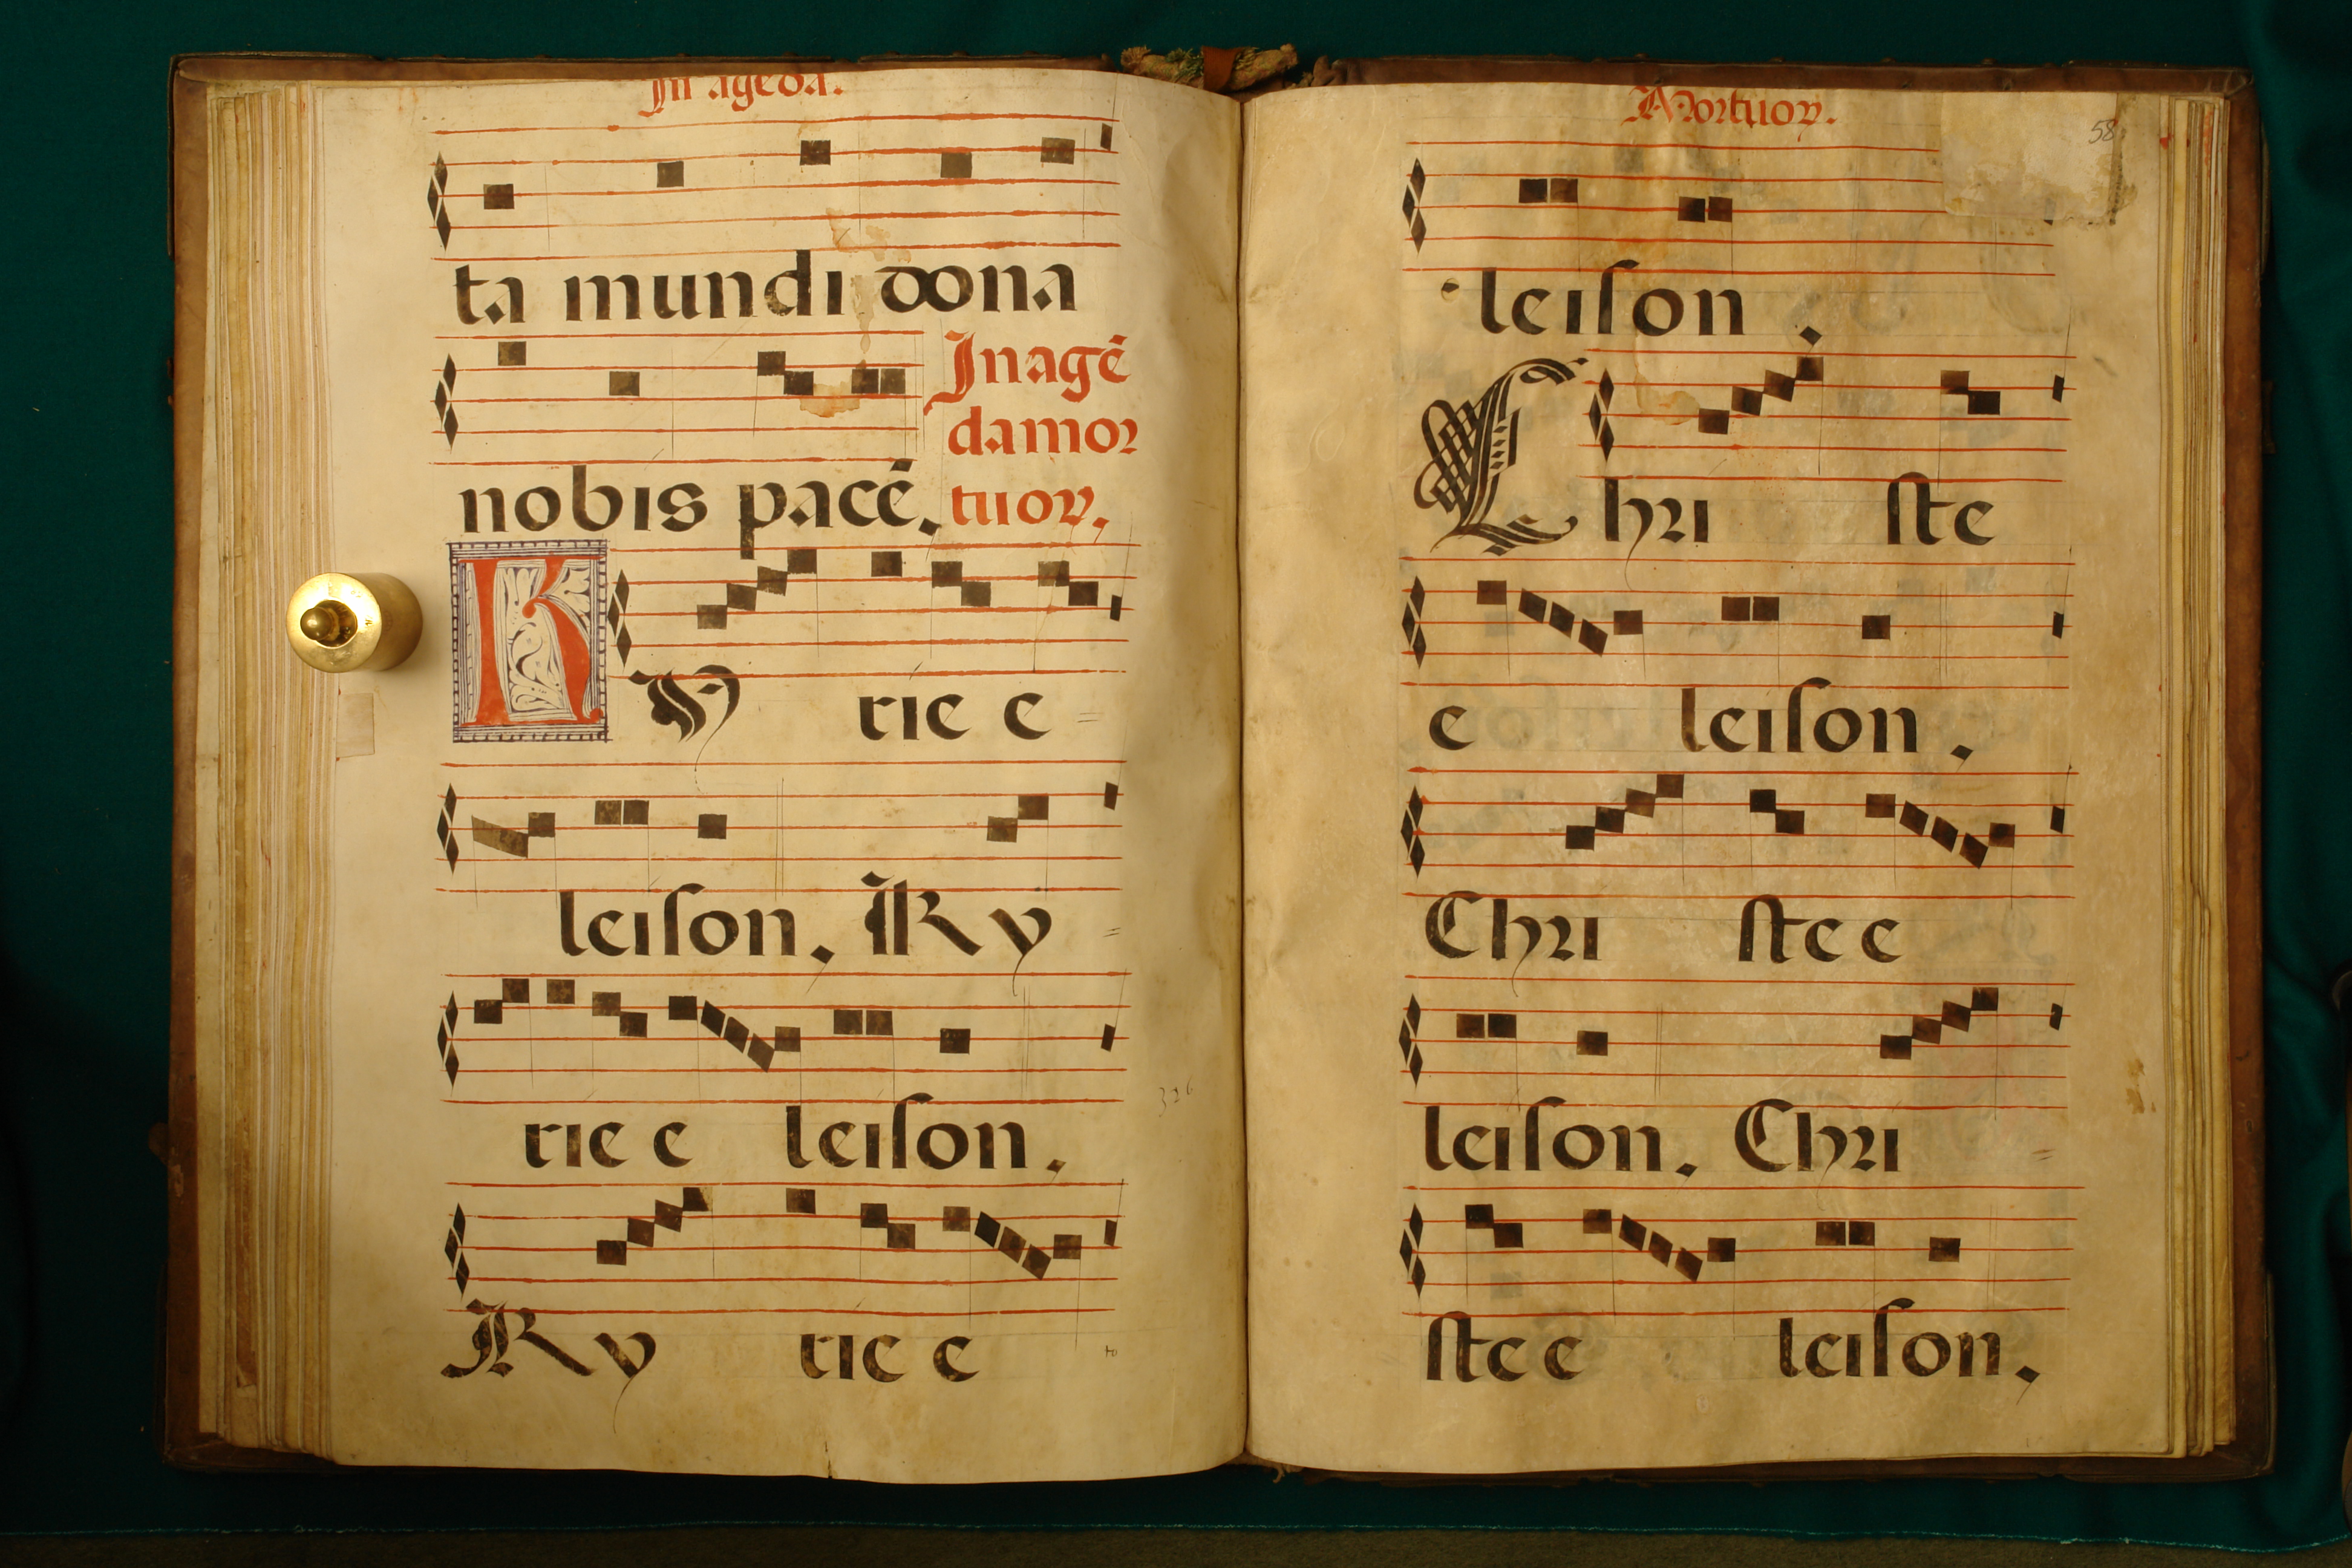 In agēda.
ta mundi dona
nobis pacē.
In agē
da mor
tuoꝝ.
Ky rie e =
leiſon. Ky =
rie e leiſon.
326
Ky rie e
Mortuoꝝ.
58
leiſon.
Chri ſte
e leiſon.
Chri ſte e
leiſon. Chri =
ſte e leiſon.